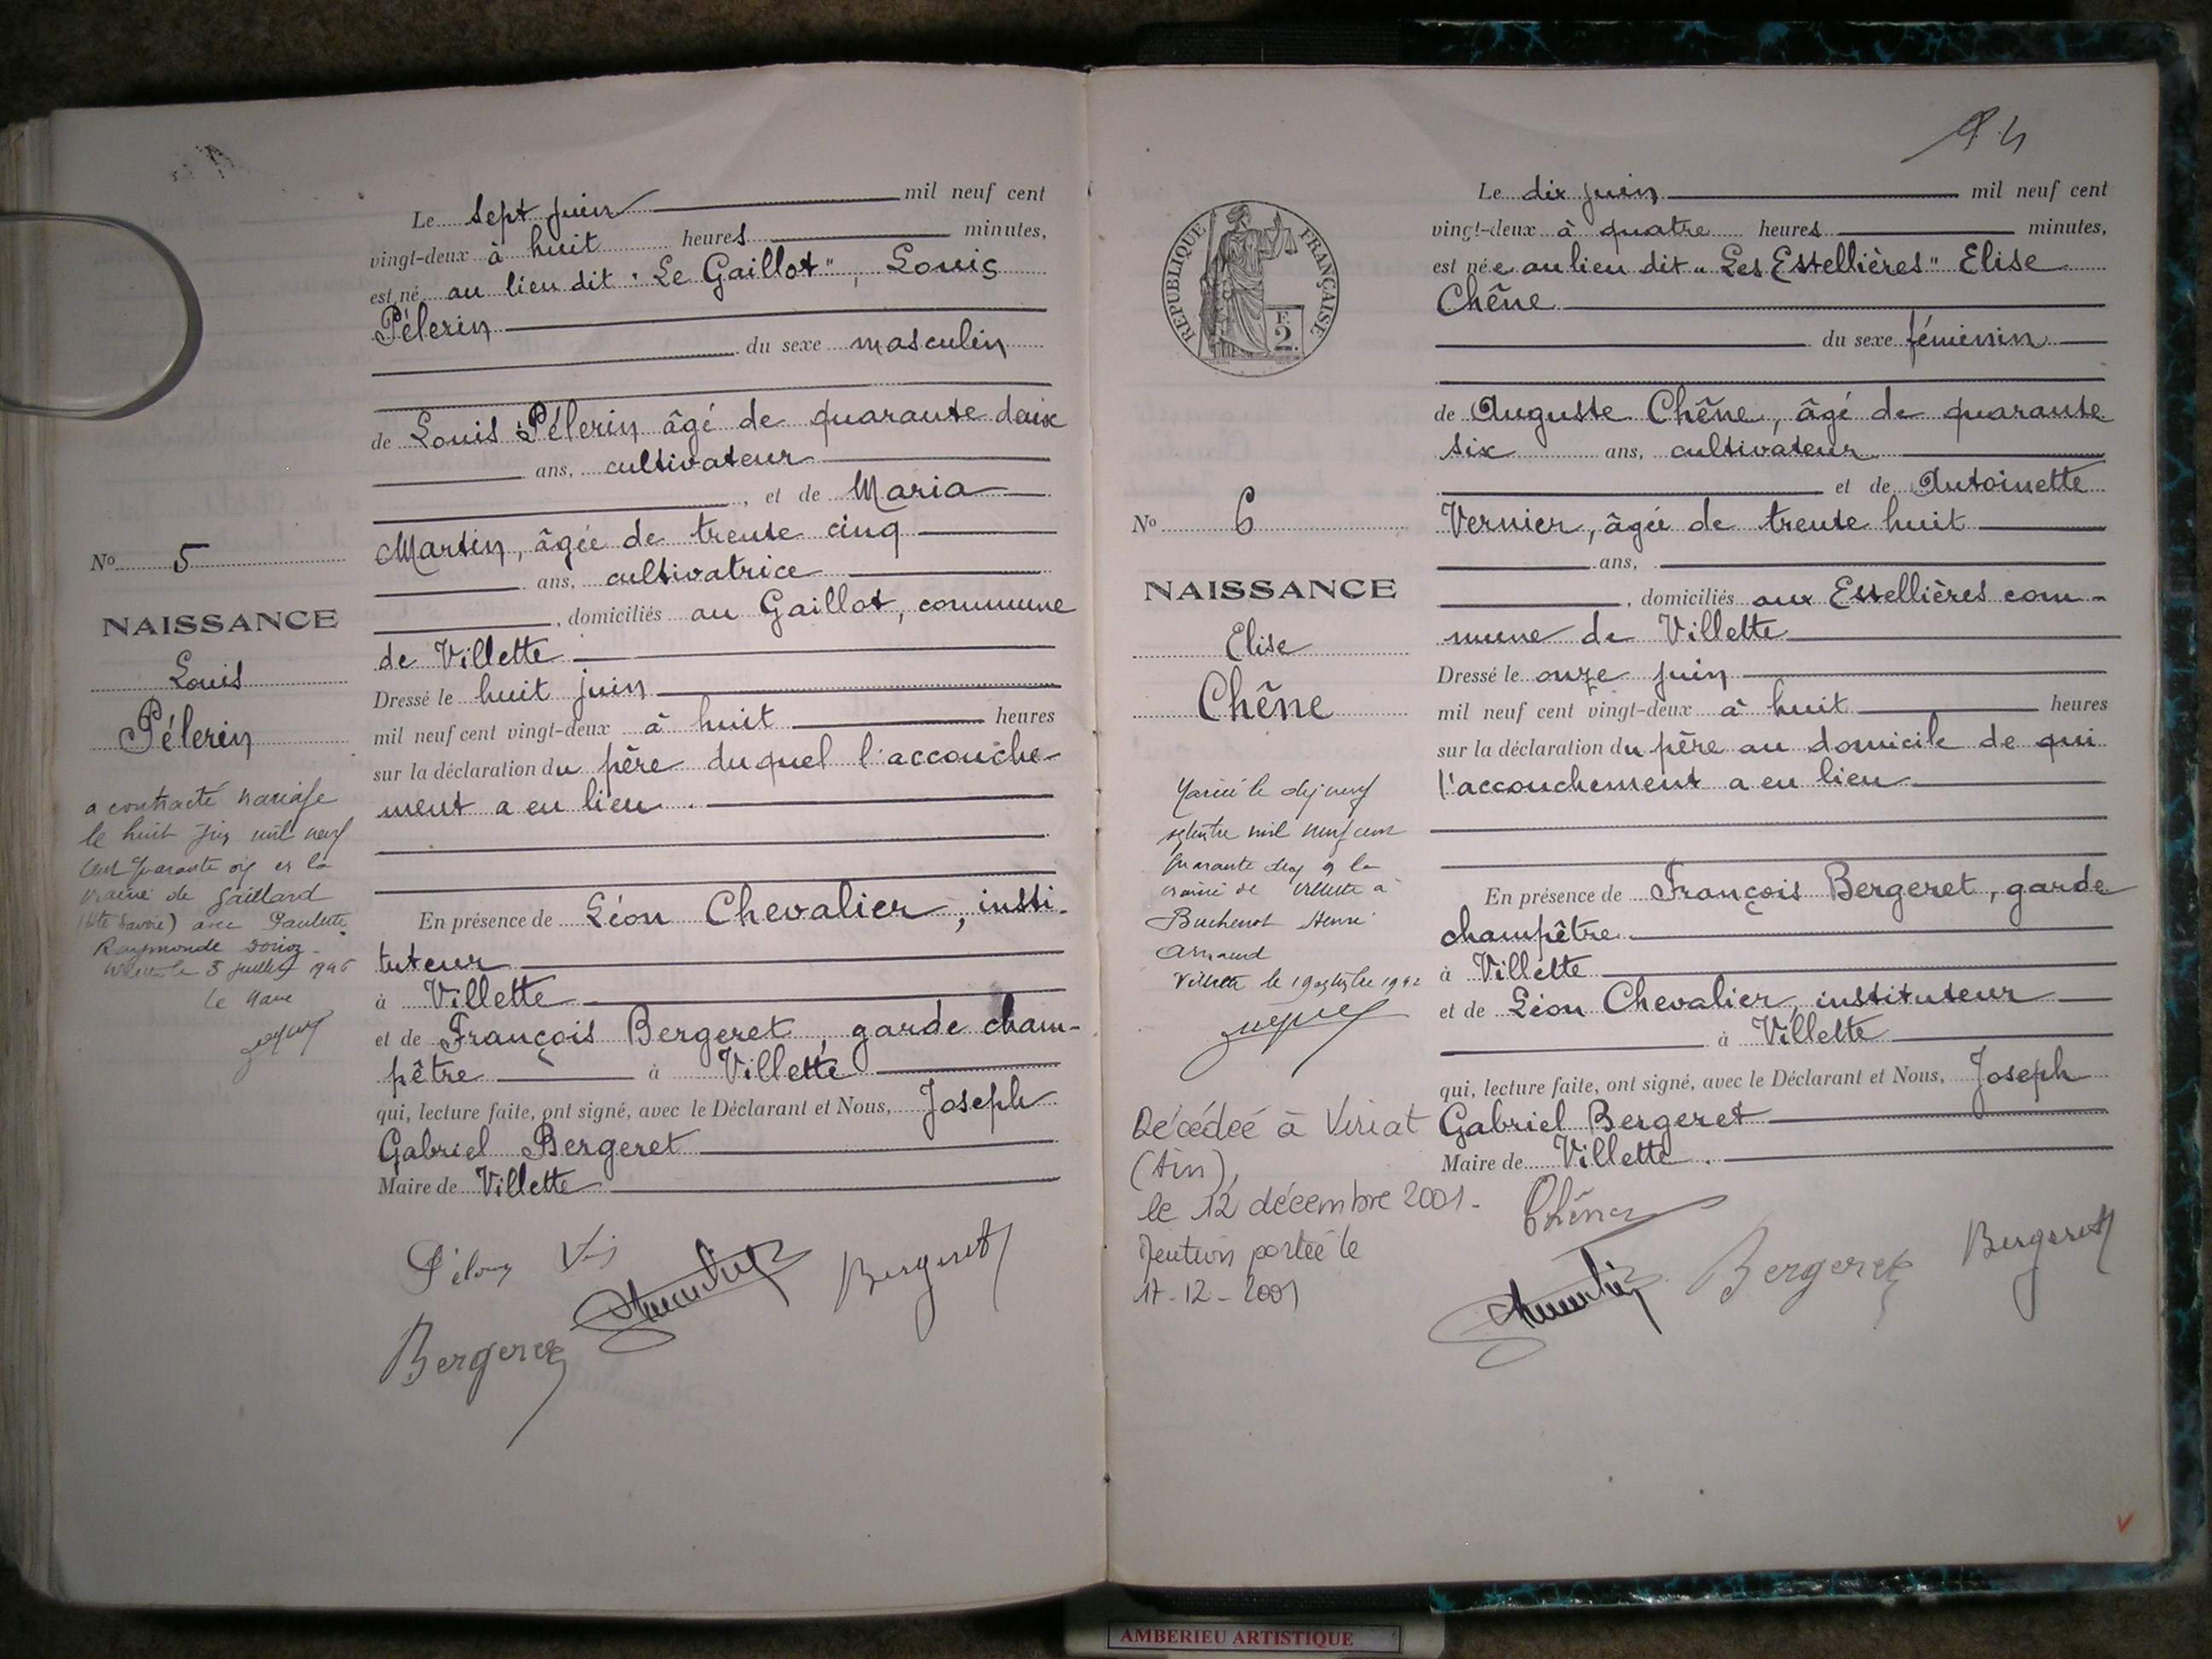 Le sept juin mil neuf cent
vingt-deux à huit heures minutes,
est né au lieu dit "Le Gaillot", Louis
Pélerin
du sexe masculin
de Louis Pélerin âgé de quarante deux
ans, cultivateur
, et de Maria
Martin, âgée de trente cinq
ans, cultivatrice
, domiciliés au Gaillot, commune
de Villette
Dressé le huit juin
mil neuf cent vingt-deux à huit heures
sur la déclaration du père duquel l'accouche-
ment a eu lieu.
En présence de Léon Chevalier, insti-
tuteur
à Villette
et de François Bergeret, garde cham-
pêtre à Villette
qui, lecture faite, ont signé, avec le Déclarant et Nous, Joseph
Gabriel Bergeret
Maire de Villette
Bergeret
Bergeret
No 5
NAISSANCE
Louis
Pélerin
a contracté mariage
le huit juin mil neuf
cent quarante à la
mairie de Gaillard
(Hte Savoie) avec Paulette
Raymonde
le 5 juillet 1946
le Maire
94
Le dix juin mil neuf cent
vingt-deux à quatre heures minutes,
est née au lieu dit "Les Estellières" Elise
Chêne
du sexe féminin
de Auguste Chêne, âgé de quarante
six ans, cultivateur
et de Antoinette
Vernier, âgée de trente huit
ans,
, domiciliés aux Estellières com-
mune de Villette
Dressé le onze juin
mil neuf cent vingt-deux à huit heures
sur la déclaration du père au domicile de qui
l'accouchement a eu lieu
En présence de François Bergeret, garde
champêtre
à Villette
et de Léon Chevalier, instituteur
à Villette
qui, lecture faite, ont signé, avec le Déclarant et Nous, Joseph
Gabriel Bergeret
Maire de Villette.
Chêne
Bergeret
Bergeret
RÉPUBLIQUE FRANÇAISE
F.
2.
No 6
NAISSANCE
Elise
Chêne
Mariée le dix neuf
septembre mil neuf cent
quarante deux à la
mairie de Villette à
Buchenot Henri
Armand
Villette le 19 septembre 1942
Décédée à Viriat
(Ain),
le 12 décembre 2001.
Mention portée le
17-12-2001
AMBERIEU ARTISTIQUE